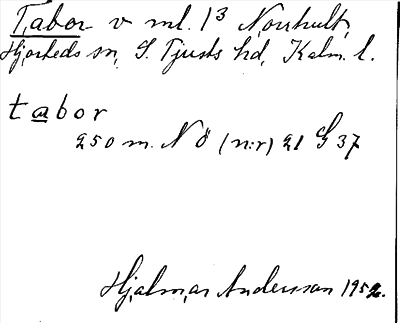 Tabor v ml. 1³ Norrhult,
Hjorteds sn, S. Tjusts hd, Kalm. l.
tabor
250 m. NÖ (n:r) 21 G 37
Hjalmar Andersson 1952.